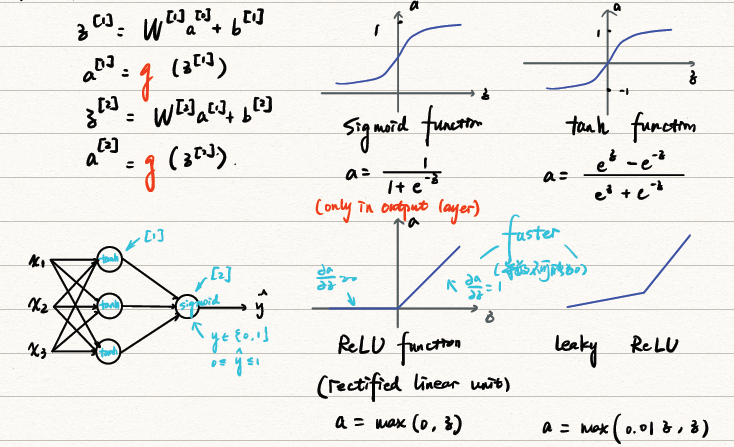 z^[1] = W^[1] a^[0] + b^[1]
a^[1] = g (z^[1])
z^[2] = W^[2] a^[1] + b^[2]
a^[2] = g (z^[2]).
a
1
z
sigmoid function
a = 1 / (1 + e^-z)
(only in output layer)
a
1
-1
z
tanh function
a = (e^z - e^-z) / (e^z + e^-z)
[1]
x1
x2
x3
tanh
tanh
tanh
[2]
sigmoid
ŷ
y ∈ {0,1}
0 ≤ ŷ ≤ 1
a
∂a/∂z = 0
∂a/∂z = 1
z
ReLU function
(rectified linear unit)
a = max (0, z)
faster
leaky ReLU
a = max (0.01 z, z)